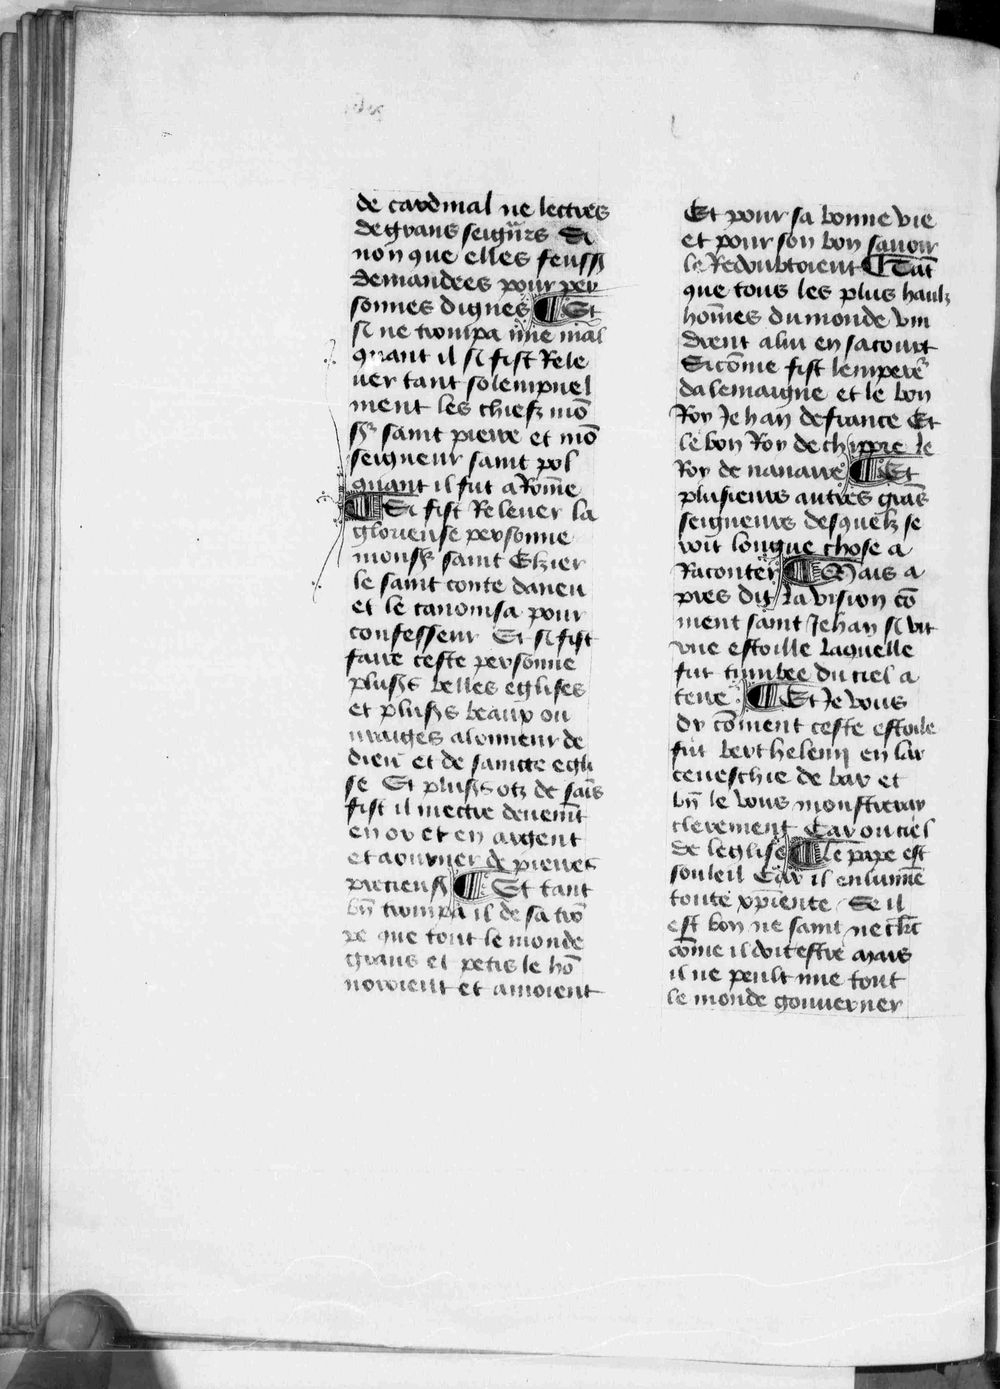 de cardinal ne lectres
de grans seigñrs Si
non que elles feussẽt
demandees pour per
sonnes dignes ¶ Et
si ne trompa mie mal
quant il si fist Rele
uer tant solempnel
ment les chiefz mõ
sr saint pierre et mõ
seigneur saint pol
quant il fut a Rom̃e
¶ Si fist Releuer la
glorieuse personne
monsr saint Elzier
le saint conte darieu
et le canonisa pour
confesseur Et si fist
faire ceste personne
plusrs belles eglises
et plusrs beaux ou
uraiges alonneur de
dieu et de saincte egli
se Et plusrs otz de sais
fist il mectre deuemt
en or et en argent
et aourner de pierres
precieuses ¶ Et tant
bñ trompa il de sa trõ
pe que tout le monde
grans et petis le hõ
noroient et amoient
Et pour sa bonne vie
et pour son bon sauoir
le Redoubtoient ¶ Tãt
que tous les plus haulz
hom̃es du monde vin
drent a lui en sa court
Si cõme fist lemperer
dalemaigne et le bon
Roy Jehan de france Et
le bon Roy de chippre le
Roy de nauarre ¶ Et
plusieurs autres grãs
seigneurs desquelz se
roit longue chose a
Raconter ¶ Mais a
pres dit la vision cõ
ment saint Jehan si vit
vne estoille laquelle
fut tumbee du ciel a
terre ¶ Et Je vous
dy cõment ceste estoile
fut berthelemy en lar
ceueschie de bar et
bñ le vous monstreray
clerement Car ou ciel
de leglise ¶ le pape est
souleil Car il enlumĩe
toute xp̃iente Se il
est bon ne saint ne cler
cõme il doit estre mais
il ne peult mie tout
le monde gouuerner